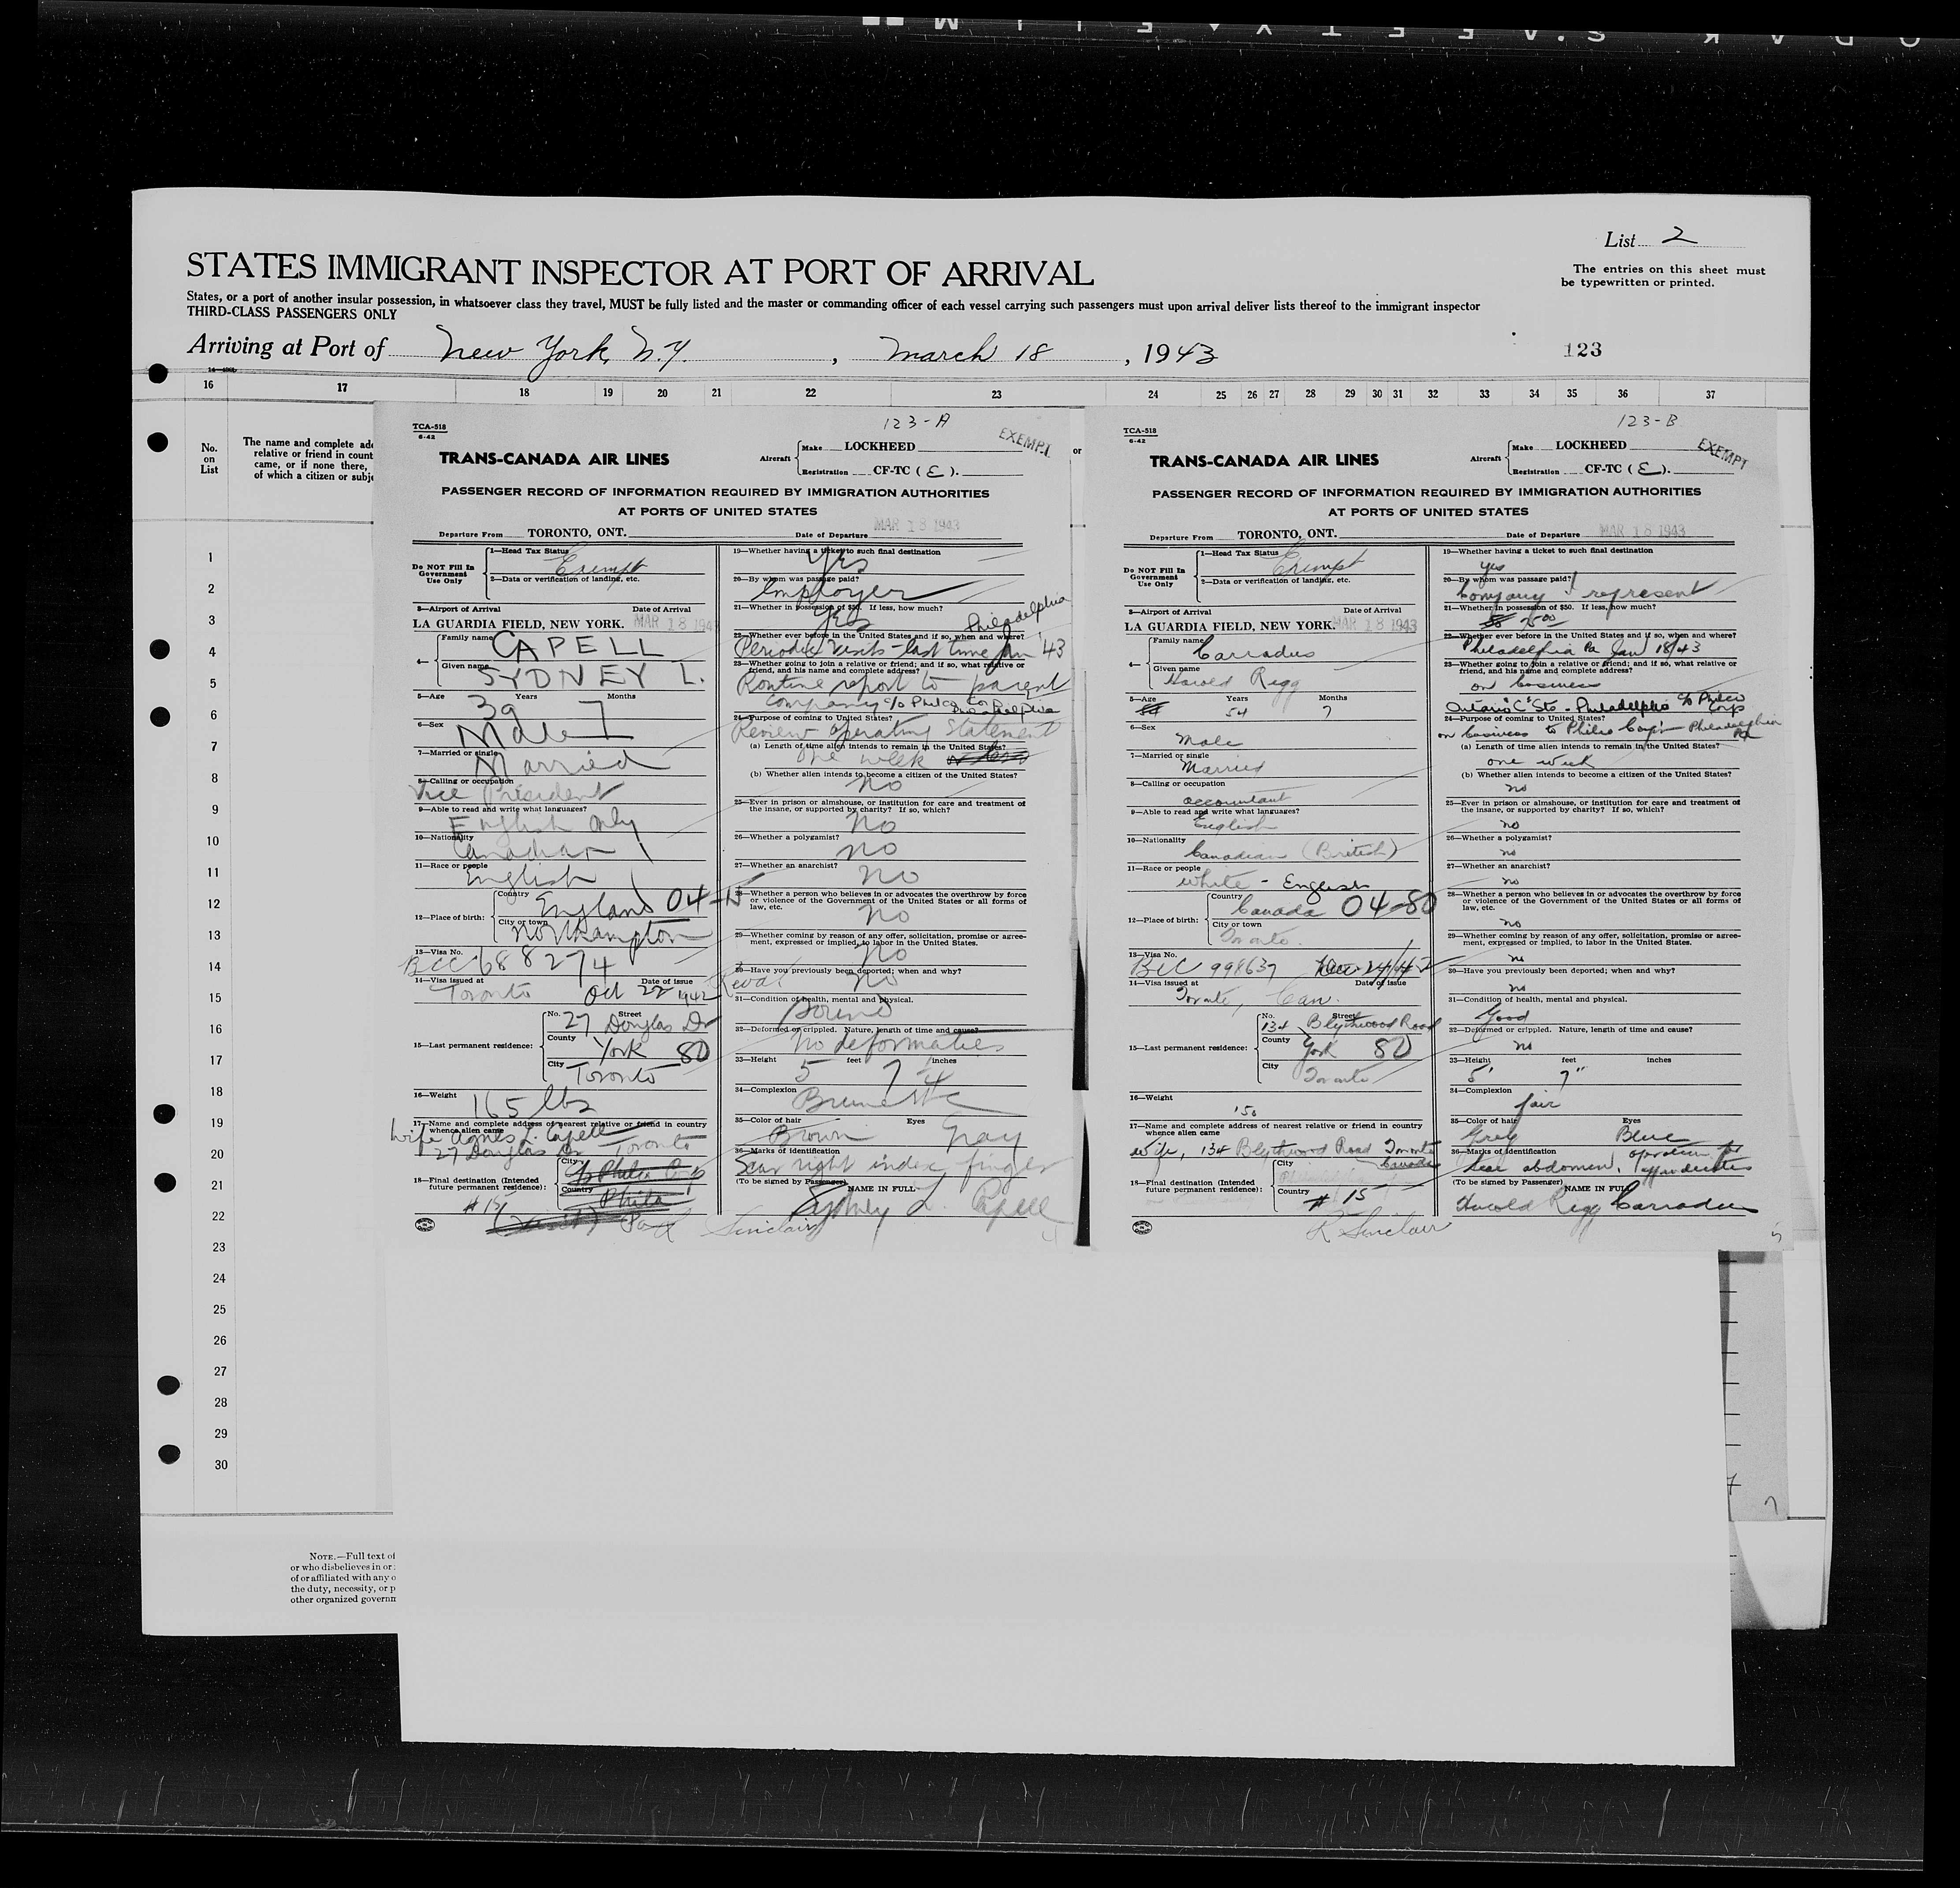 List 2
STATES IMMIGRANT INSPECTOR AT PORT OF ARRIVAL
The entries on this sheet must
be typewritten or printed.
States, or a port of another insular possession, in whatsoever class they travel, MUST be fully listed and the master or commanding officer of each vessel carrying such passengers must upon arrival deliver lists thereof to the immigrant inspector
THIRD-CLASS PASSENGERS ONLY
Arriving at Port of New York, N.Y. , March 18 , 1943
123
16 17 18 19 20 21 22 23 24 25 26 27 28 29 30 31 32 33 34 35 36 37
No.
on
List
The name and complete ad
relative or friend in count
came, or if none there,
of which a citizen or subj
or
1
2
3
4
5
6
7
8
9
10
11
12
13
14
15
16
17
18
19
20
21
22
23
24
25
26
27
28
29
30
NOTE.—Full text of
or who disbelieves in or
of or affiliated with any o
the duty, necessity, or p
other organized governm
123-A
TCA-518
6-42
EXEMPT
TRANS-CANADA AIR LINES
Aircraft
Make LOCKHEED
Registration CF-TC (E).
PASSENGER RECORD OF INFORMATION REQUIRED BY IMMIGRATION AUTHORITIES
AT PORTS OF UNITED STATES
Departure From TORONTO, ONT. Date of Departure MAR 18 1943
Do NOT Fill In
Government
Use Only
1—Head Tax Status Exempt
2—Data or verification of landing, etc.
3—Airport of Arrival Date of Arrival
LA GUARDIA FIELD, NEW YORK. MAR 18 194
4—
Family name CAPELL
Given name SYDNEY L.
5—Age Years Months
39 7
6—Sex Male
7—Married or single Married
8—Calling or occupation
Vice President
9—Able to read and write what languages?
English only
10—Nationality
Canadian
11—Race or people
English
12—Place of birth:
Country England 04-15
City or town Northampton
13—Visa No.
BCC 688274
14—Visa issued at Date of issue
Toronto Oct 22 1942
15—Last permanent residence:
No. Street
27 Douglas Dr
County York 80
City Toronto
16—Weight 165 lbs
17—Name and complete address of nearest relative or friend in country
whence alien came
Wife Agnes L. Capell
27 Douglas Dr Toronto
18—Final destination (Intended
future permanent residence):
City c/o Philco Corp
Country Phila
#15
Sinclair
19—Whether having a ticket to such final destination
Yes
20—By whom was passage paid?
Employer
21—Whether in possession of $50. If less, how much?
Yes
Philadelphia
22—Whether ever before in the United States and if so, when and where?
Periodic visits - last time Jan '43
23—Whether going to join a relative or friend; and if so, what relative or
friend, and his name and complete address?
Routine report to parent
company c/o Philco Corp
Philadelphia
24—Purpose of coming to United States?
Review operating statement
(a) Length of time alien intends to remain in the United States?
One week
(b) Whether alien intends to become a citizen of the United States?
No
25—Ever in prison or almshouse, or institution for care and treatment of
the insane, or supported by charity? If so, which?
No
26—Whether a polygamist?
No
27—Whether an anarchist?
No
28—Whether a person who believes in or advocates the overthrow by force
or violence of the Government of the United States or all forms of
law, etc.
No
29—Whether coming by reason of any offer, solicitation, promise or agree-
ment, expressed or implied, to labor in the United States.
No
30—Have you previously been deported; when and why?
No
31—Condition of health, mental and physical.
Sound
32—Deformed or crippled. Nature, length of time and cause?
No deformaties
33—Height feet inches
5 7 1/4
34—Complexion
Brunette
35—Color of hair Eyes
Brown Gray
36—Marks of identification
Scar right index finger
(To be signed by Passenger) NAME IN FULL
Sydney L. Capell
123-B
TCA-518
6-42
EXEMPT
TRANS-CANADA AIR LINES
Aircraft
Make LOCKHEED
Registration CF-TC (E).
PASSENGER RECORD OF INFORMATION REQUIRED BY IMMIGRATION AUTHORITIES
AT PORTS OF UNITED STATES
Departure From TORONTO, ONT. Date of Departure MAR 18 1943
Do NOT Fill In
Government
Use Only
1—Head Tax Status Exempt
2—Data or verification of landing, etc.
3—Airport of Arrival Date of Arrival
LA GUARDIA FIELD, NEW YORK. MAR 18 1943
4—
Family name Carradus
Given name Harold Rigg
5—Age Years Months
54 54 7
6—Sex
Male
7—Married or single
Married
8—Calling or occupation
accountant
9—Able to read and write what languages?
English
10—Nationality
Canadian (British)
11—Race or people
White - English
12—Place of birth:
Country Canada 04-80
City or town
Toronto.
13—Visa No.
BCC 998637 Dec 24/42
14—Visa issued at Date of issue
Toronto, Can.
15—Last permanent residence:
No. Street
134 Blythwood Road
County York 80
City Toronto
16—Weight
150
17—Name and complete address of nearest relative or friend in country
whence alien came
Wife, 134 Blythwood Road Toronto
Canada
18—Final destination (Intended
future permanent residence):
City
Country # 15
R Sinclair
19—Whether having a ticket to such final destination
yes
20—By whom was passage paid?
Company I represent
21—Whether in possession of $50. If less, how much?
75 00
22—Whether ever before in the United States and if so, when and where?
Philadelphia Pa Jan 18/43
23—Whether going to join a relative or friend; and if so, what relative or
friend, and his name and complete address?
on business
Ontario "C" Sts - Philadelphia c/o Philco Corp
24—Purpose of coming to United States?
on business to Philco Corp'n Philadelphia Pa
(a) Length of time alien intends to remain in the United States?
one week
(b) Whether alien intends to become a citizen of the United States?
no
25—Ever in prison or almshouse, or institution for care and treatment of
the insane, or supported by charity? If so, which?
no
26—Whether a polygamist?
no
27—Whether an anarchist?
no
28—Whether a person who believes in or advocates the overthrow by force
or violence of the Government of the United States or all forms of
law, etc.
no
29—Whether coming by reason of any offer, solicitation, promise or agree-
ment, expressed or implied, to labor in the United States.
no
30—Have you previously been deported; when and why?
no
31—Condition of health, mental and physical.
Good
32—Deformed or crippled. Nature, length of time and cause?
no
33—Height feet inches
5' 7"
34—Complexion
fair
35—Color of hair Eyes
Grey Blue
36—Marks of identification
Scar abdomen, operation for
appendicitis
(To be signed by Passenger) NAME IN FULL
Harold Rigg Carradus